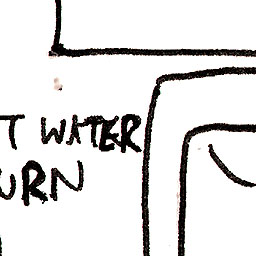 T WATER
URN